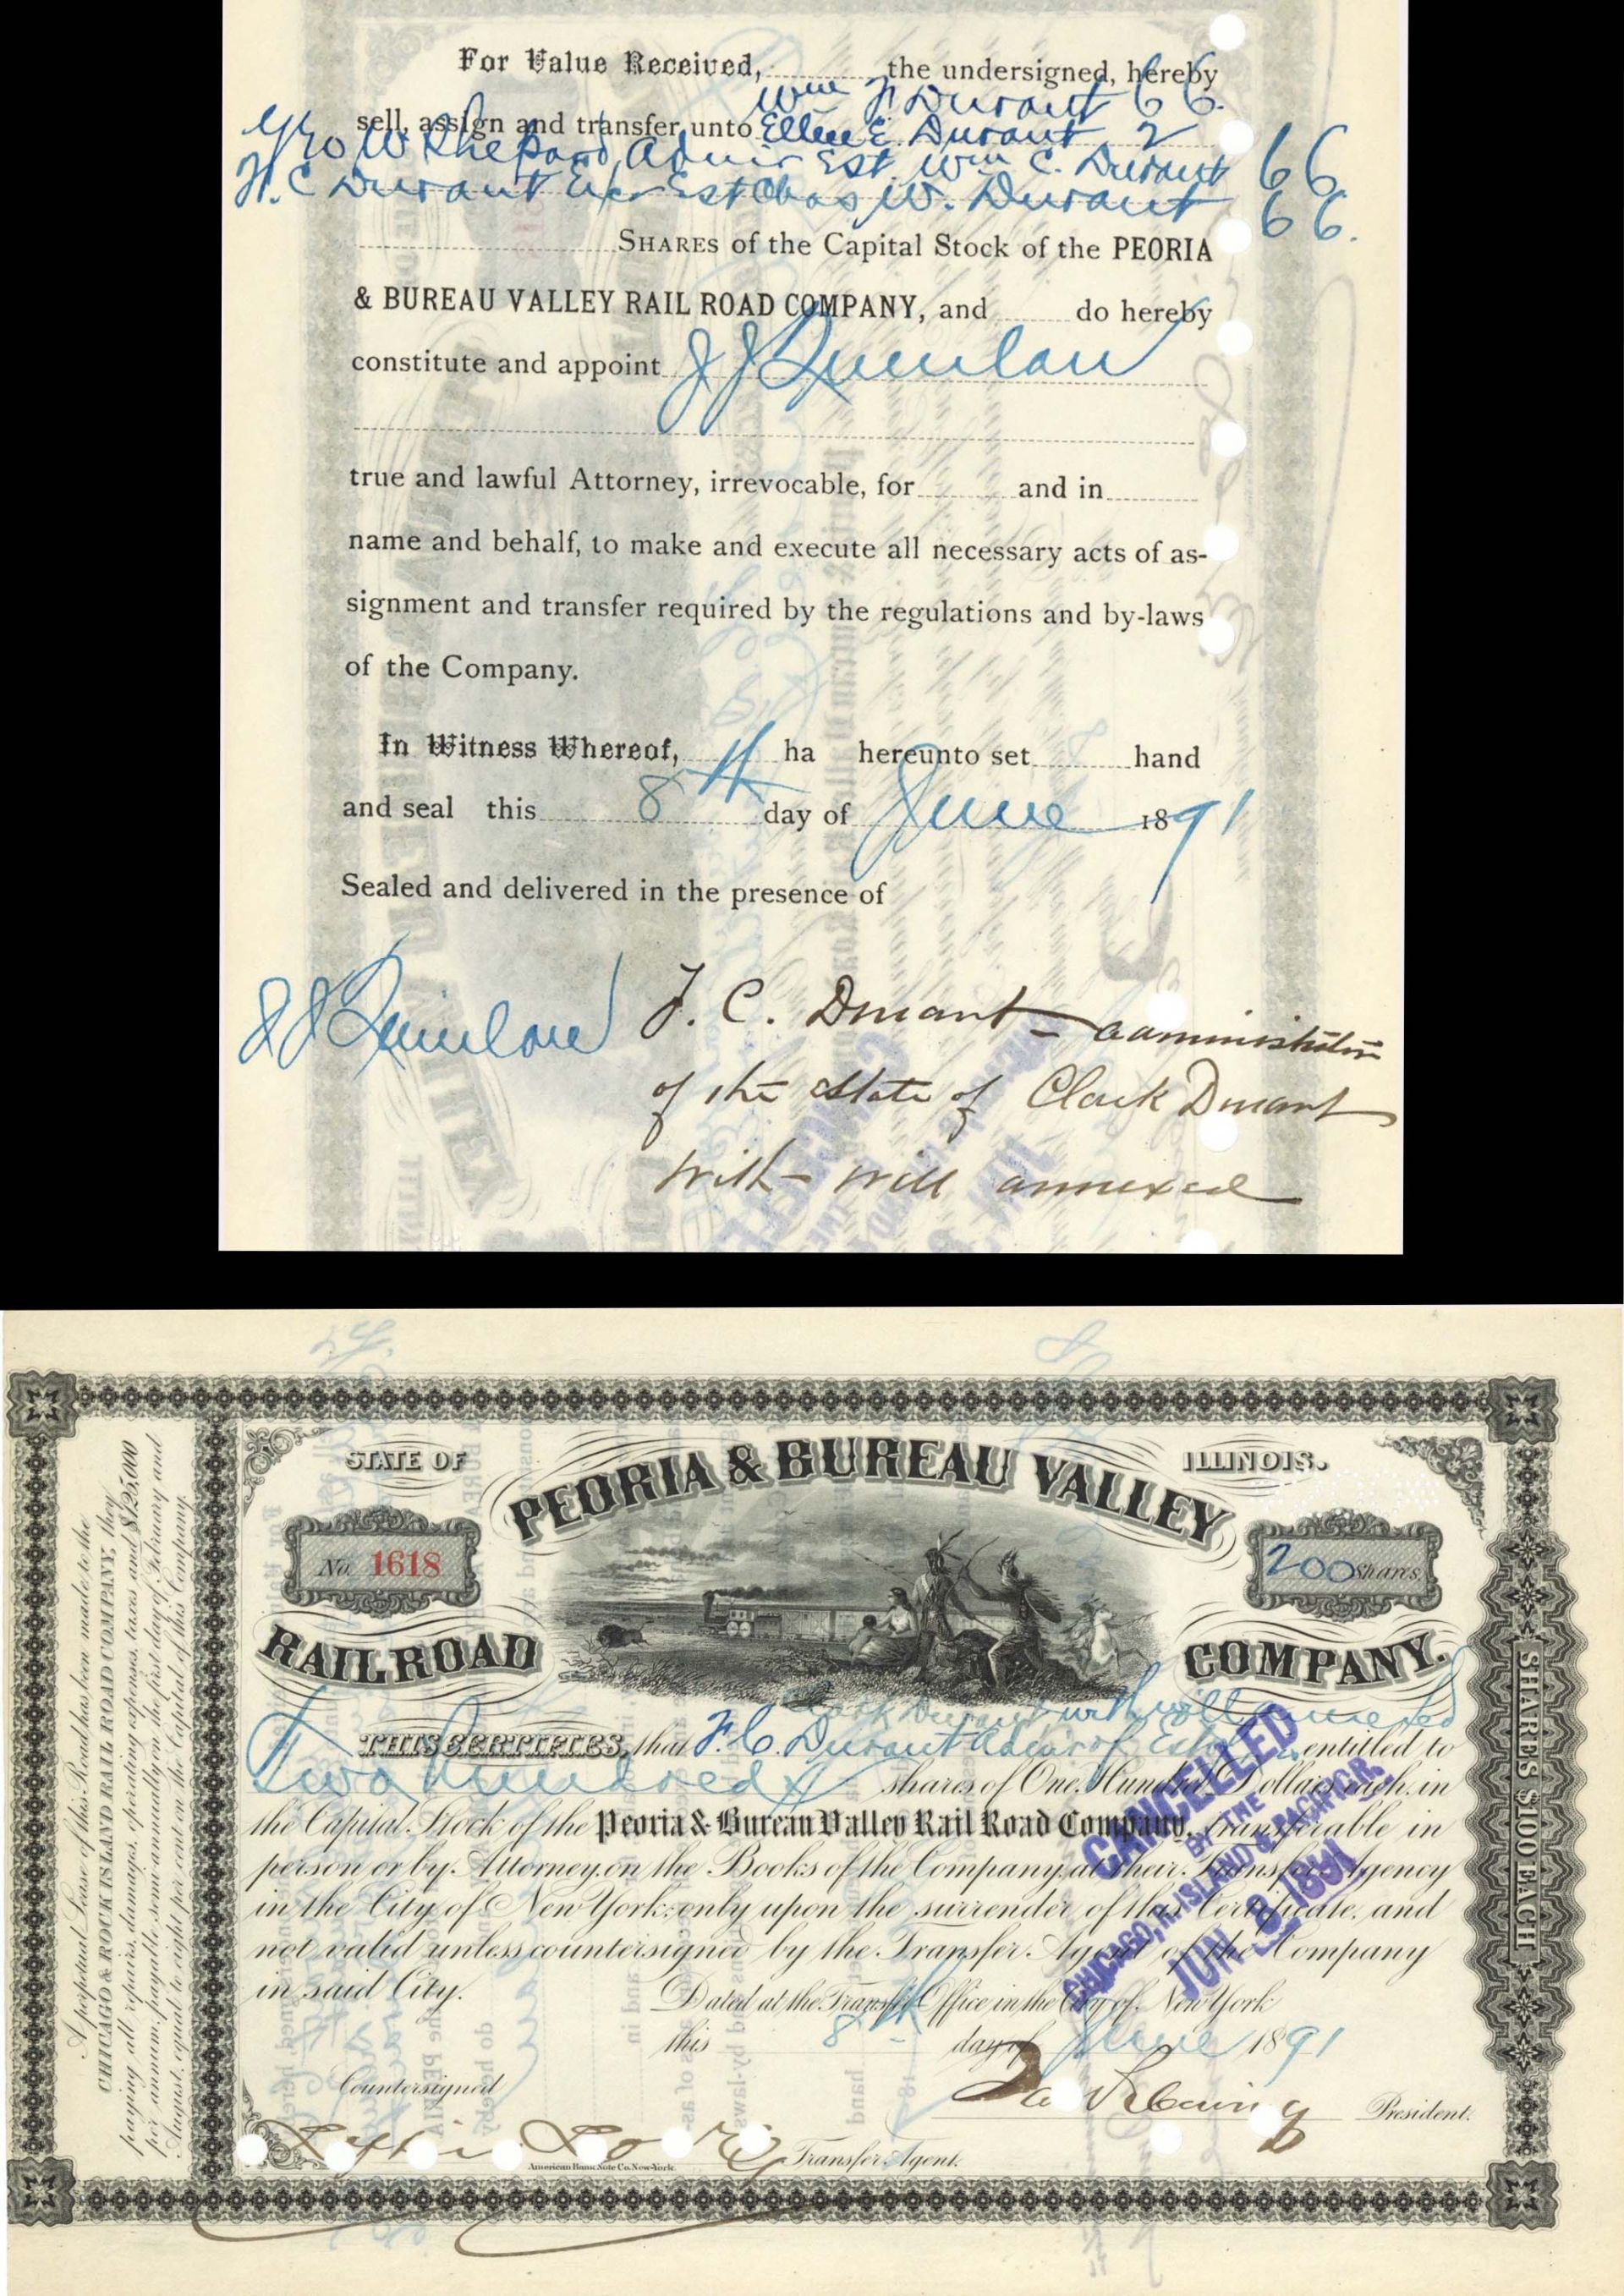 For Value Received, the undersigned, hereby
Wm F Durant 66.
sell, assign and transfer unto Ellen E. Durant 2
Geo W Shepard, Admir Est Wm C. Durant 66
F. C Durant Exr Est Chas W. Durant 66.
SHARES of the Capital Stock of the PEORIA
& BUREAU VALLEY RAIL ROAD COMPANY, and do hereby
constitute and appoint J J Quinlan
true and lawful Attorney, irrevocable, for and in
name and behalf, to make and execute all necessary acts of as-
signment and transfer required by the regulations and by-laws
of the Company.
In Witness Whereof, ha hereunto set hand
and seal this 8th day of June 1891
Sealed and delivered in the presence of
J J Quinlan
F. C. Durant - administrator
of the estate of Clark Durant
with will annexed
A perpetual Lease of this Road has been made to the
CHICAGO & ROCK ISLAND RAIL ROAD COMPANY, they
paying all repairs, damages, operating expenses, taxes and $125,000
per annum, payable semi-annually on the first day of February and
August, equal to eight per cent on the Capital of this Company.
STATE OF ILLINOIS.
PEORIA & BUREAU VALLEY
No. 1618
200 Shares
RAILROAD COMPANY.
Clark Durant with will annexed
THIS CERTIFIES, that F. C. Durant Admr of Est is entitled to
Two Hundred shares of One Hundred Dollars each, in
the Capital Stock of the Peoria & Bureau Valley Rail Road Company, transferable in
person or by Attorney, on the Books of the Company, at their Transfer Agency
in the City of New York, only upon the surrender of this Certificate, and
not valid unless countersigned by the Transfer Agent of the Company
in said City.
Dated at the Transfer Office in the City of New York
this 8th day of June 1891
Countersigned
President.
Transfer Agent.
American Bank Note Co. New-York.
CANCELLED
BY THE
CHICAGO, R. ISLAND & PACIFIC R.
JUN 8 1891
SHARES $100 EACH